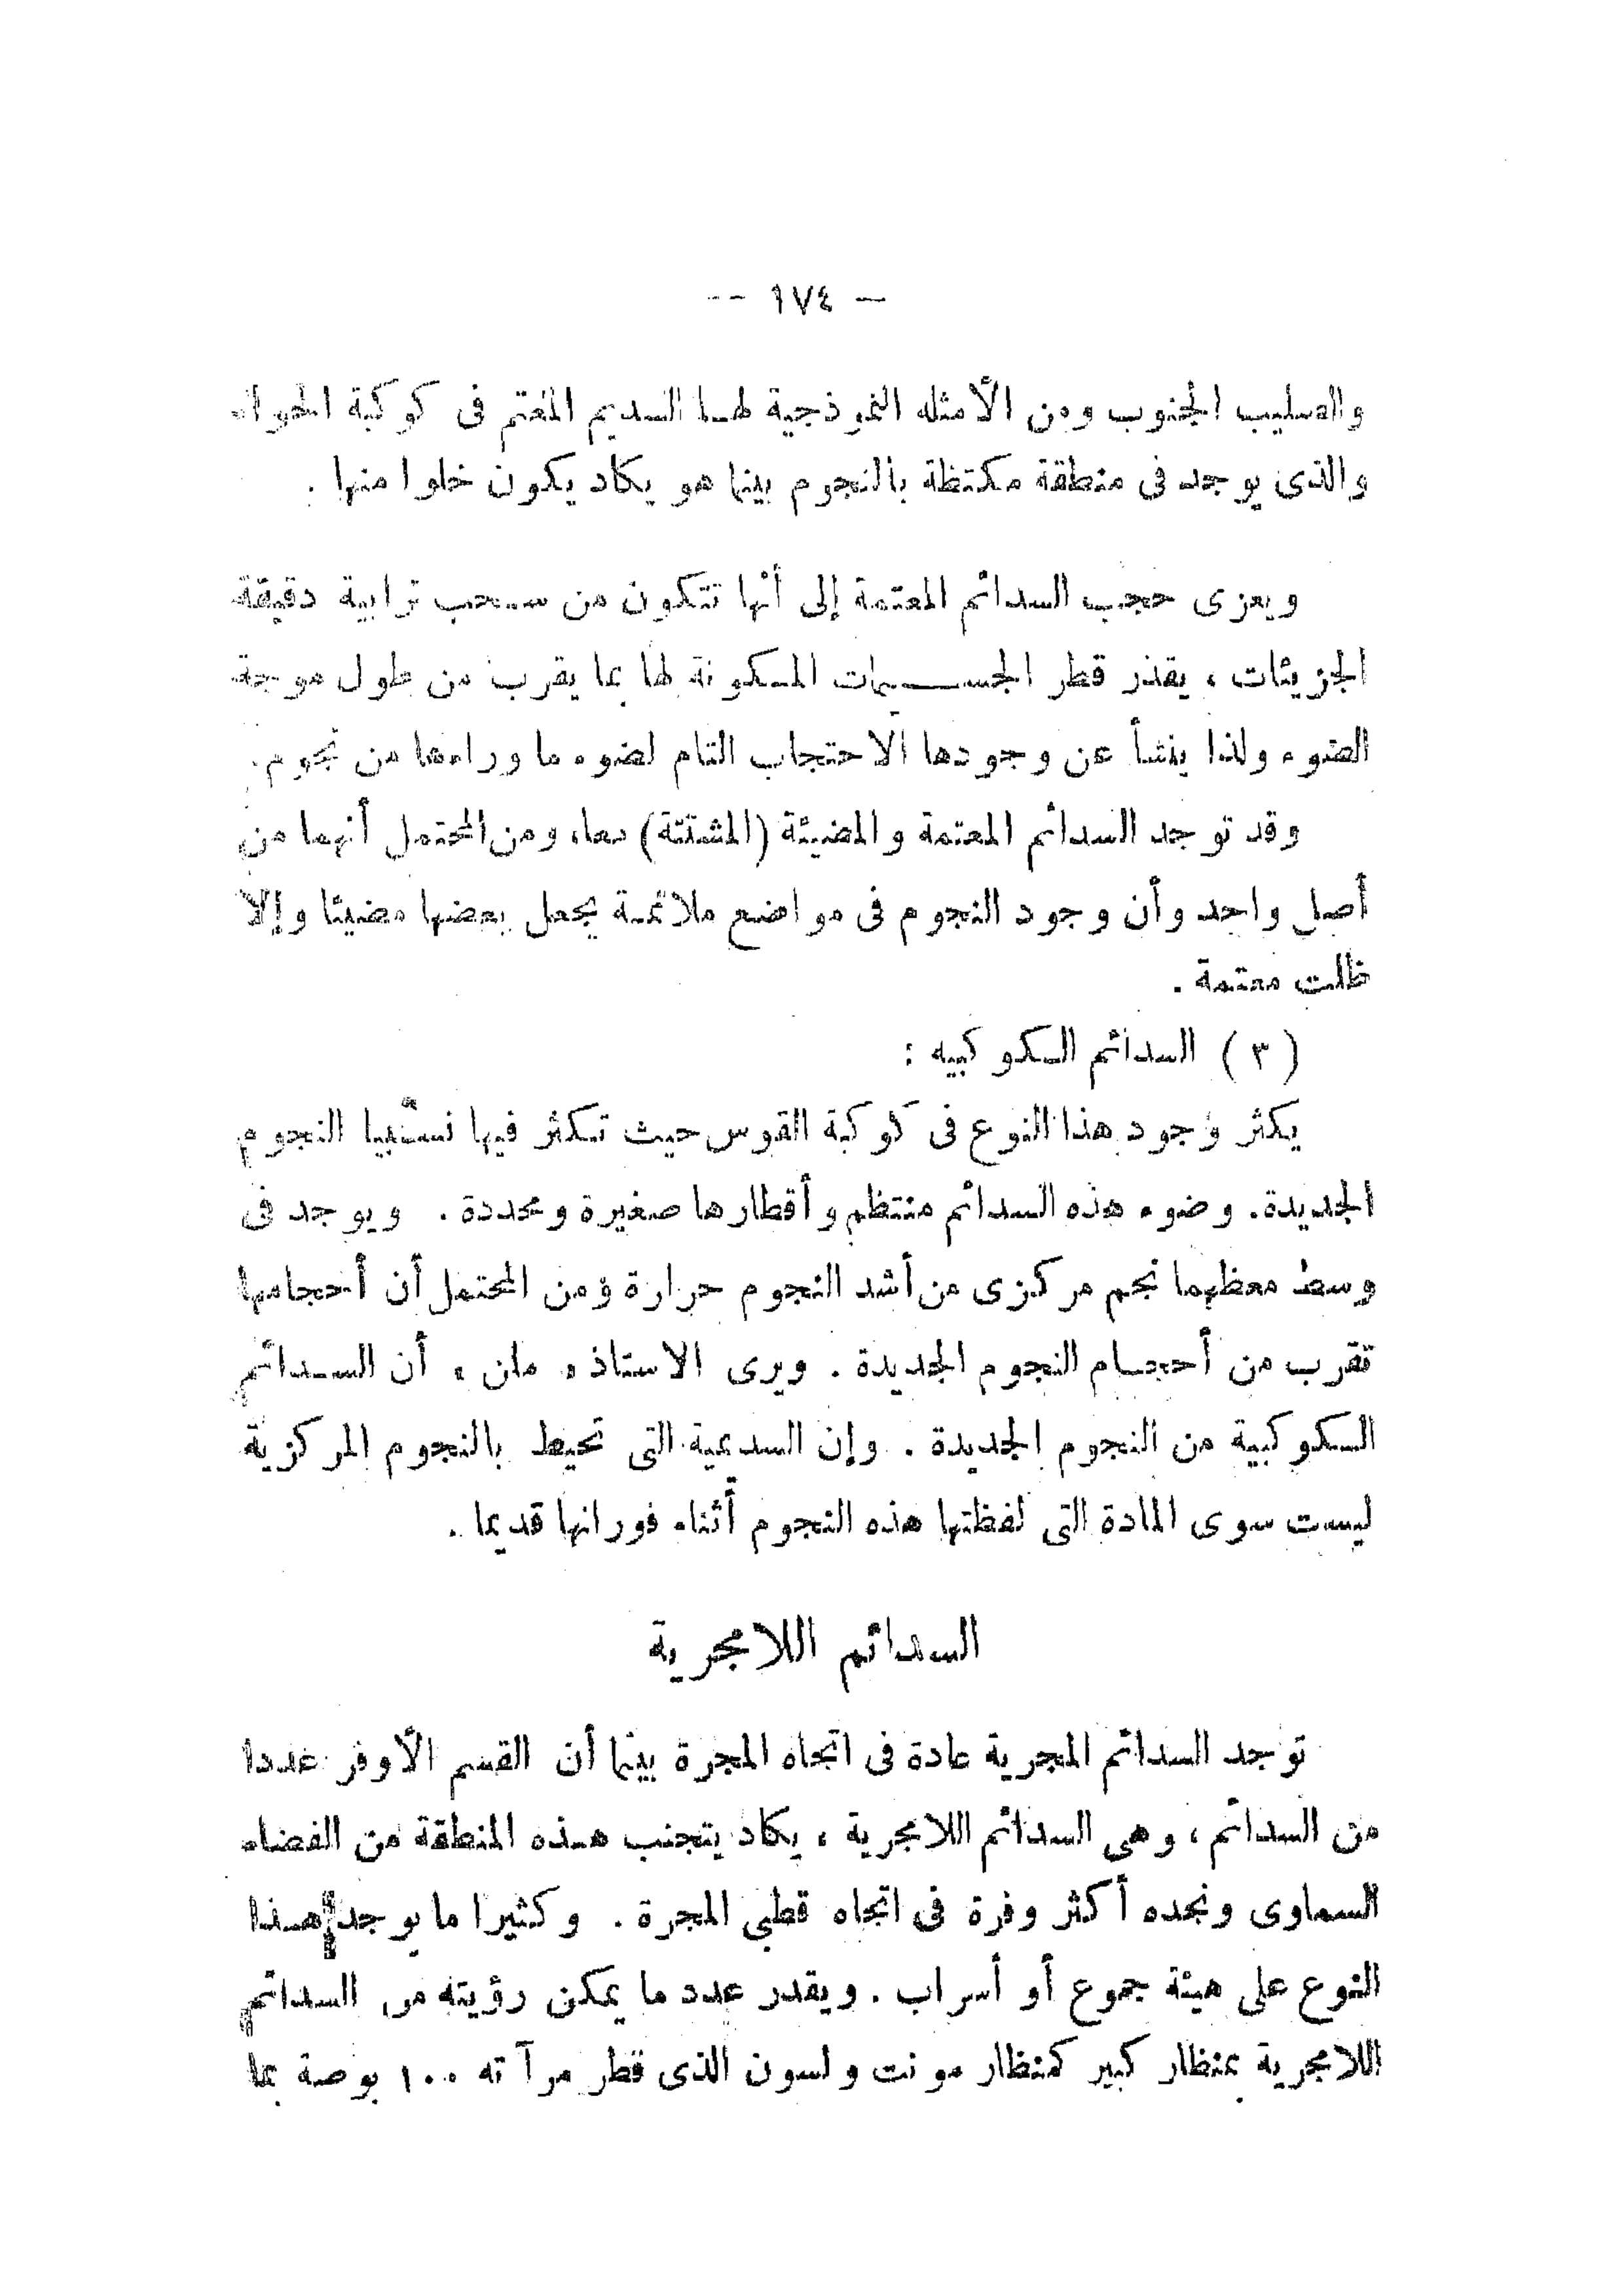 — ١٧٤ —
والصليب الجنوب ومن الأمثله النموذجية لهـا السديم المعتم فى كوكبة الحواء
والذى يوجد فى منطقة مكتظة بالنجوم بينما هو يكاد يكون خلوا منها .
ويعزى حجب السدائم المعتمة إلى أنها تتكون من سحب ترابية دقيقة
الجزيئات ، يقدر قطر الجسـيمات المكونة لها بما يقرب من طول موجة
الضوء ولذا ينشأ عن وجودها الاحتجاب التام لضوء ما وراءها من نجوم.
وقد توجد السدائم المعتمة والمضيئة (المشتتة) معا، ومن المحتمل أنهما من
أصل واحد وأن وجود النجوم فى مواضع ملائمـة يجعل بعضها مضيئا وإلا
ظلت معتمة .
( ٣ ) السدائم الكوكبيه :
يكثر وجود هذا النوع فى كوكبة القوس حيث تكثر فيها نسبيا النجوم
الجديدة. وضوء هذه السدائم منتظم وأقطارها صغيرة ومحددة . ويوجد فى
وسط معظهما نجم مركزى من أشد النجوم حرارة ومن المحتمل أن أحجامها
تقرب من أحجـام النجوم الجديدة . ويرى الاستاذ « ملن » أن السـدائم
الكوكبية من النجوم الجديدة . وإن السدعية التى تحيط بالنجوم المركزية
ليست سوى المادة التى لفظتها هذه النجوم أثناء فورانها قديما .
السدائم اللامجرية
توجد السدائم المجرية عادة فى اتجاه المجرة بينما أن القسم الأوفر عددا
من السدائم ، وهى السدائم اللامجرية ، يكاد يتجنب هـذه المنطقة من الفضاء
السماوى ونجده أكثر وفرة فى اتجاه قطبى المجرة . وكثيرا ما يوجد هـذا
النوع على هيئة جموع أو أسراب . ويقدر عدد ما يمكن رؤيته من السدائم
اللامجرية بمنظار كبير كمنظار مونت ولسون الذى قطر مرآته ١٠٠ بوصة بما